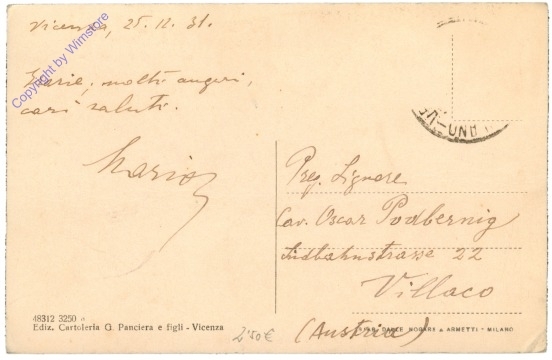 Vicenza, 25.12.31.
Grazie, molti auguri,
cari saluti.
Mario
Preg. Signore
Cav. Oscar Podbernig
Südbahnstrasse 22
Villaco
(Austria)
48312 3250
Ediz. Cartoleria G. Panciera e figli - Vicenza
2'50€
& ARMETTI - MILANO
Copyright by Wimstore